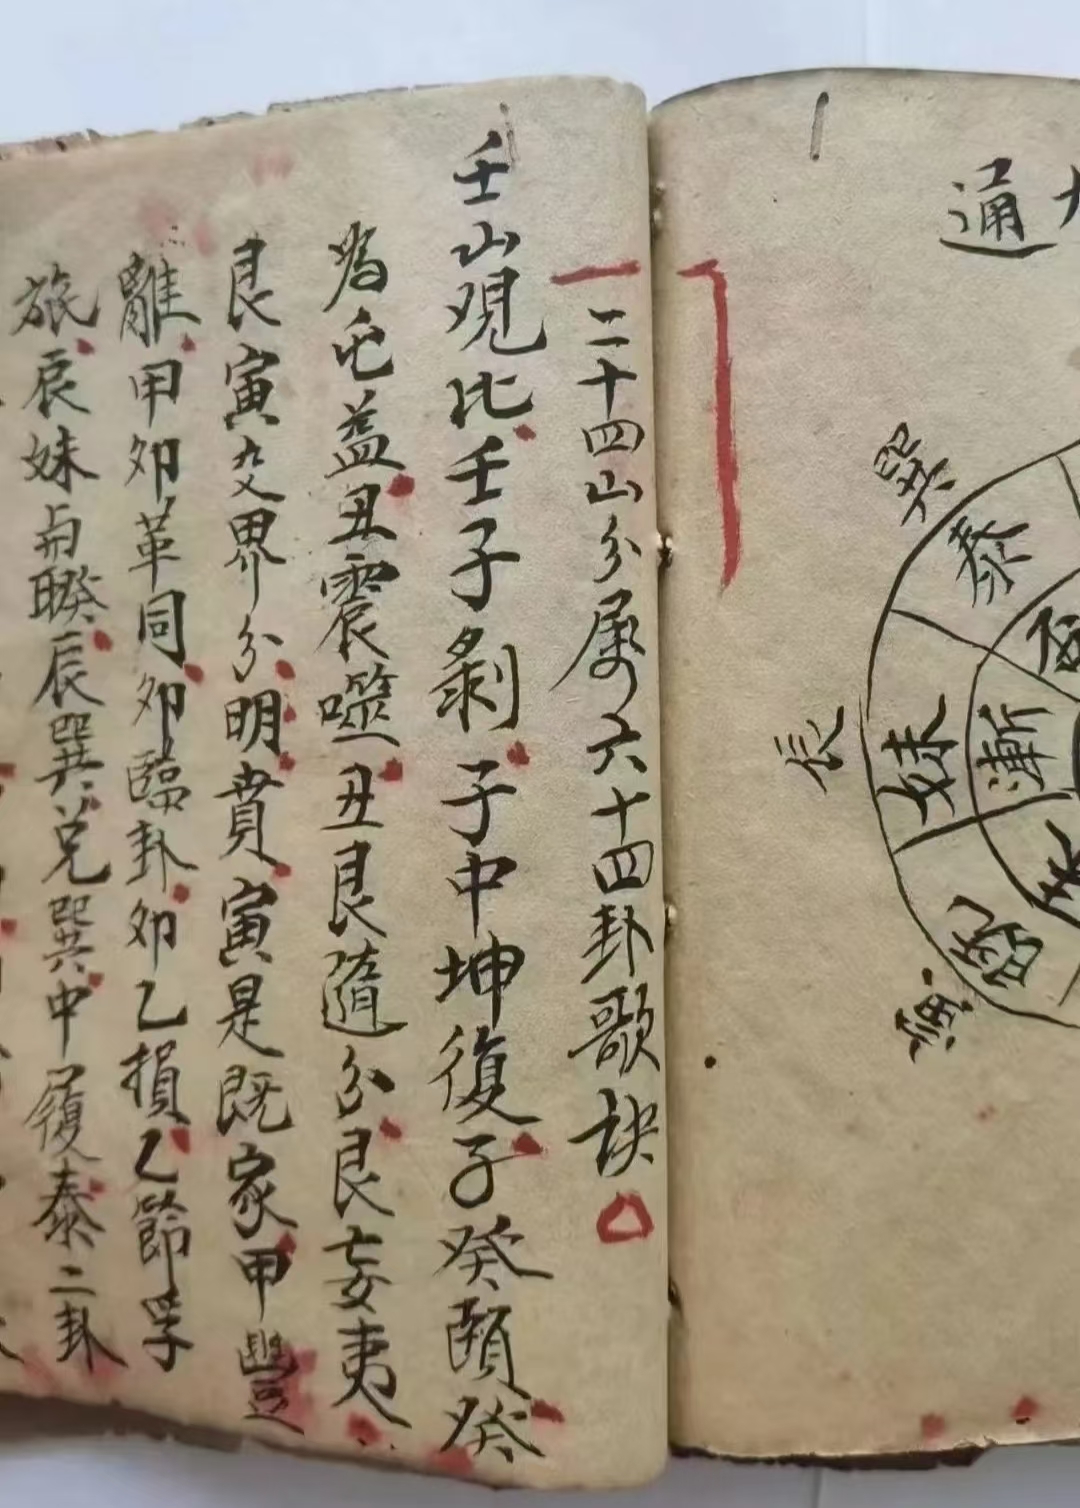 二十四山分属六十四卦歌诀
壬山观比壬子剥子中坤復子癸頤癸
為屯益丑震噬丑艮随分艮妄夷
艮寅爻界分明賁寅是既家甲豐
離甲卯革同卯臨卦卯乙損乙節孚
旅辰妹與睽辰巽兑巽中履泰二卦
通
巽
泰
辰
妹
漸